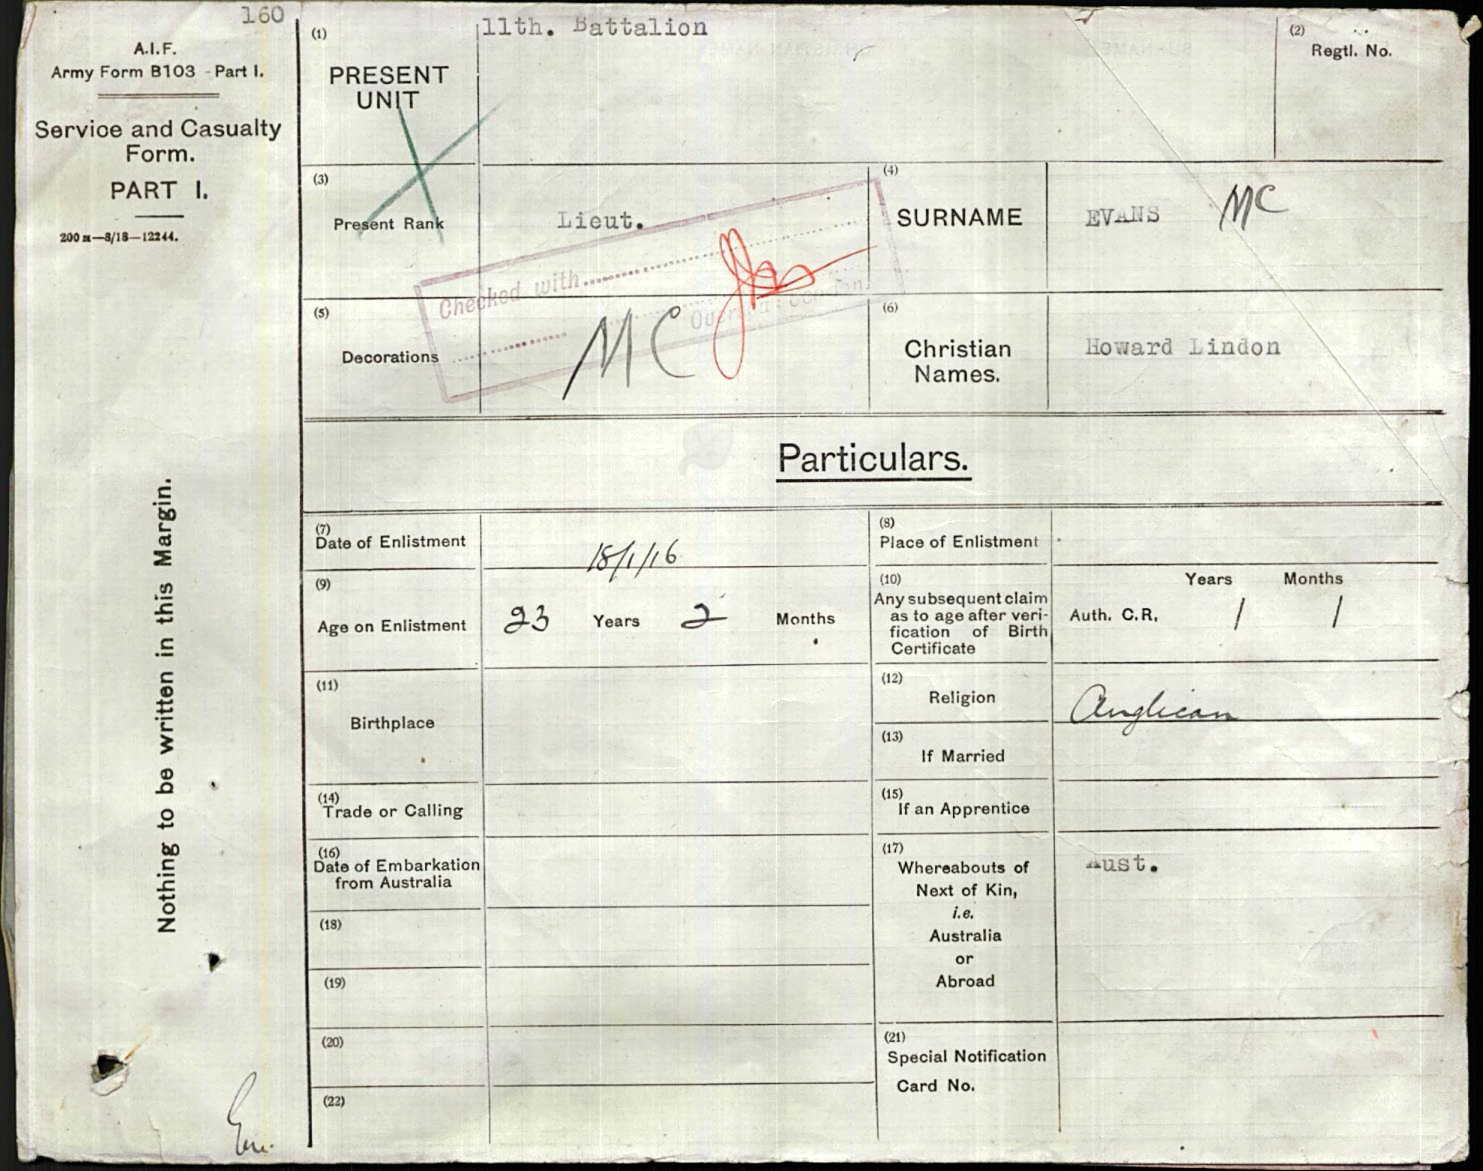 160
A.I.F.
Army Form B103 - Part I.
Service and Casualty
Form.
PART I.
200 M—8/18—12244.
Nothing to be written in this Margin.
(1)
PRESENT
UNIT
11th. Battalion
(2)
Regtl. No.
(3)
Present Rank
Lieut.
(4)
SURNAME
EVANS MC
Checked with
(5)
Decorations
MC
(6)
Christian
Names.
Howard Lindon
Particulars.
(7)
Date of Enlistment
18/1/16
(8)
Place of Enlistment
(9)
Age on Enlistment
23 Years 2 Months
(10)
Any subsequent claim
as to age after veri-
fication of Birth
Certificate
Years Months
Auth. C.R. / /
(11)
Birthplace
(12)
Religion
Anglican
(13)
If Married
(14)
Trade or Calling
(15)
If an Apprentice
(16)
Date of Embarkation
from Australia
(17)
Whereabouts of
Next of Kin,
i.e.
Australia
or
Abroad
Aust.
(18)
(19)
(20)
(21)
Special Notification
Card No.
(22)